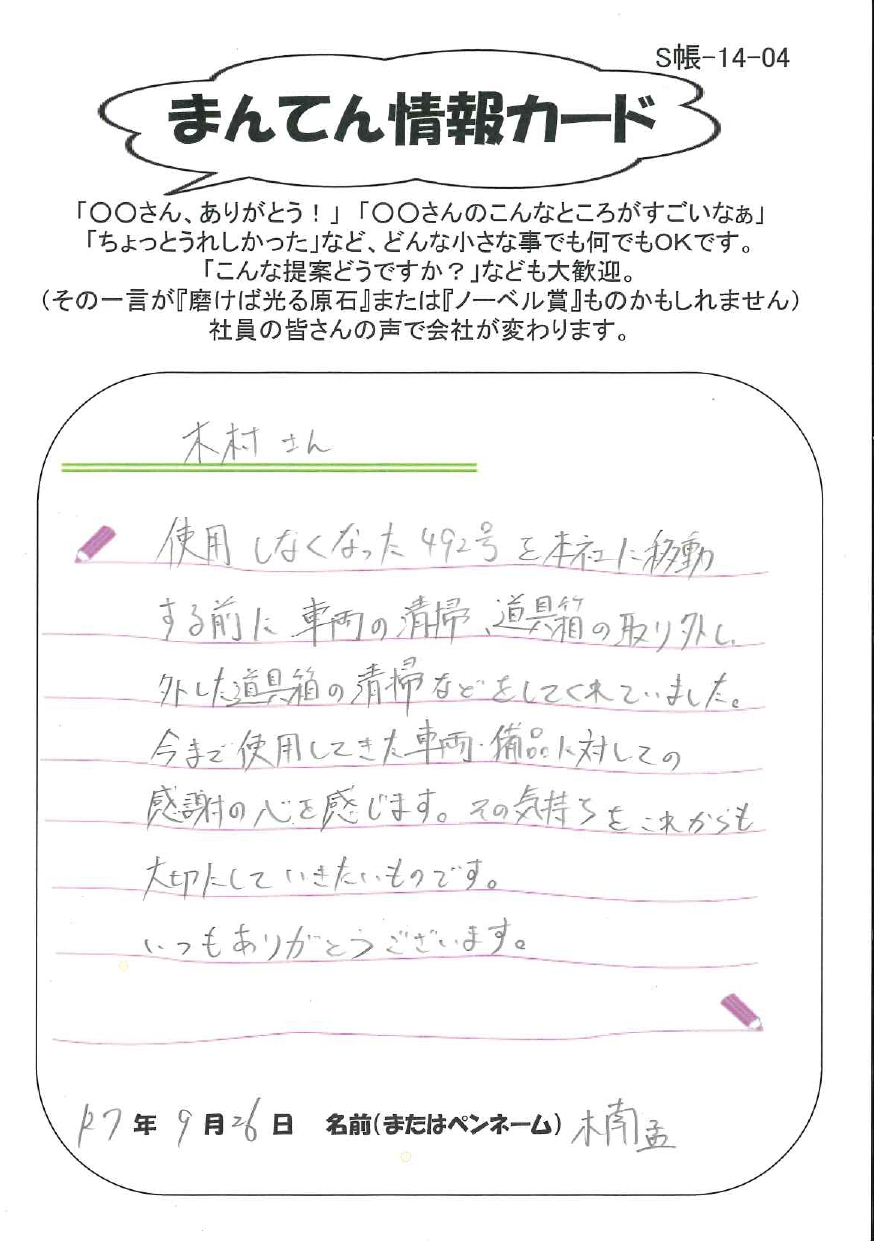 S帳-14-04
まんてん情報カード
「〇〇さん、ありがとう！」「〇〇さんのこんなところがすごいなぁ」
「ちょっとうれしかった」など、どんな小さな事でも何でもOKです。
「こんな提案どうですか？」なども大歓迎。
（その一言が『磨けば光る原石』または『ノーベル賞』ものかもしれません）
社員の皆さんの声で会社が変わります。
木村さん
使用しなくなった492号を本社に移動
する前に車両の清掃、道具箱の取り外し、
外した道具箱の清掃などをしてくれていました。
今まで使用してきた車両・備品に対しての
感謝の心を感じます。その気持ちをこれからも
大切にしていきたいものです。
いつもありがとうございます。
R7年9月26日 名前(またはペンネーム) 楠